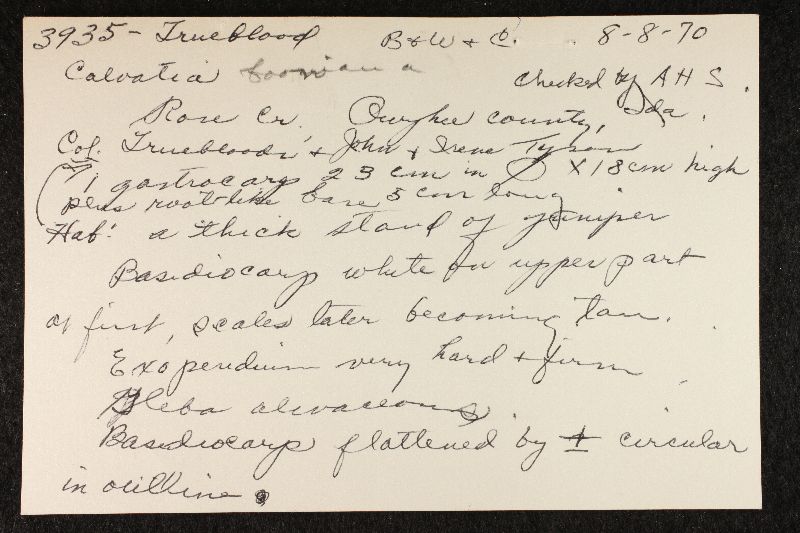 3935 - Trueblood B+W + C. 8-8-70
Calvatia booniana checked by A H S.
Rose Cr. Owyhee county, Ida.
Col. Truebloods' + John + Irene Tyson
(1 gastrocarp 23 cm in ∅ X 18 cm high
plus root-like base 5 cm long
Hab: a thick stand of juniper
Basidiocarp white on upper part
at first, scales later becoming tan.
Exoperidium very hard + firm
Gleba olivaceous.
Basidiocarp flattened by ± circular
in outline.